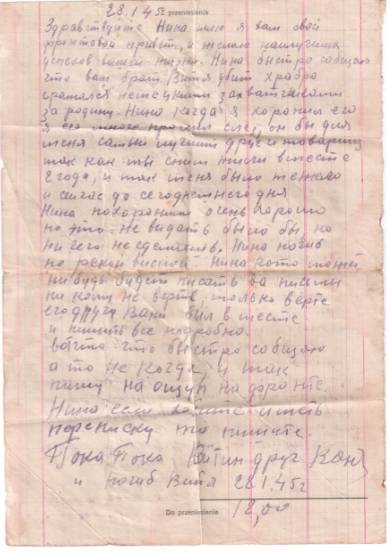 28.1.45г przeniesienia
Здравствуйте Нина шлю я вам свой
фронтовой привет, и желаю наилучших
успехов вашей жизни. Нина быстро сообщаю
что ваш брат Витя убит храбро
сражался немецкими захватчиками
за родину. Нина когда я хоронил его
я много слез, он был для
меня самый лучший друг и товарищ
так как мы с ним жили вместе
2 года, и так меня было тежело
и сичас до сегоднешнего дня
Нина похоронили очень хорошо
но это не видать было бы но
ни чего не сделаеш. Нина погиб
на рекой Нина кото может
нибудь будет писать за письмы
ни кому не верте, только верте
его друга Вани был вместе
и пишите все подробна.
что быстро собщаю
а то не когда, и так
пишу на ощуп на дороге.
Нина если хотите иметь
переписку то пишите.
Пока Пока Витин друг
и погиб Витя 28.1.45г
Do przeniesienia 18,00